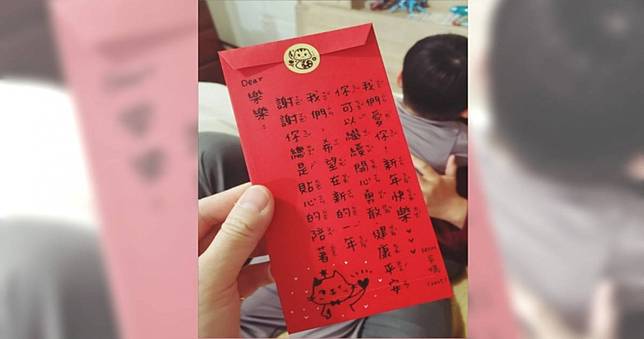 Dear
樂樂:
謝謝你總是貼心的陪著
我們,希望在新的一年
你可以繼續開心勇敢健康平安
我們愛你,新年快樂